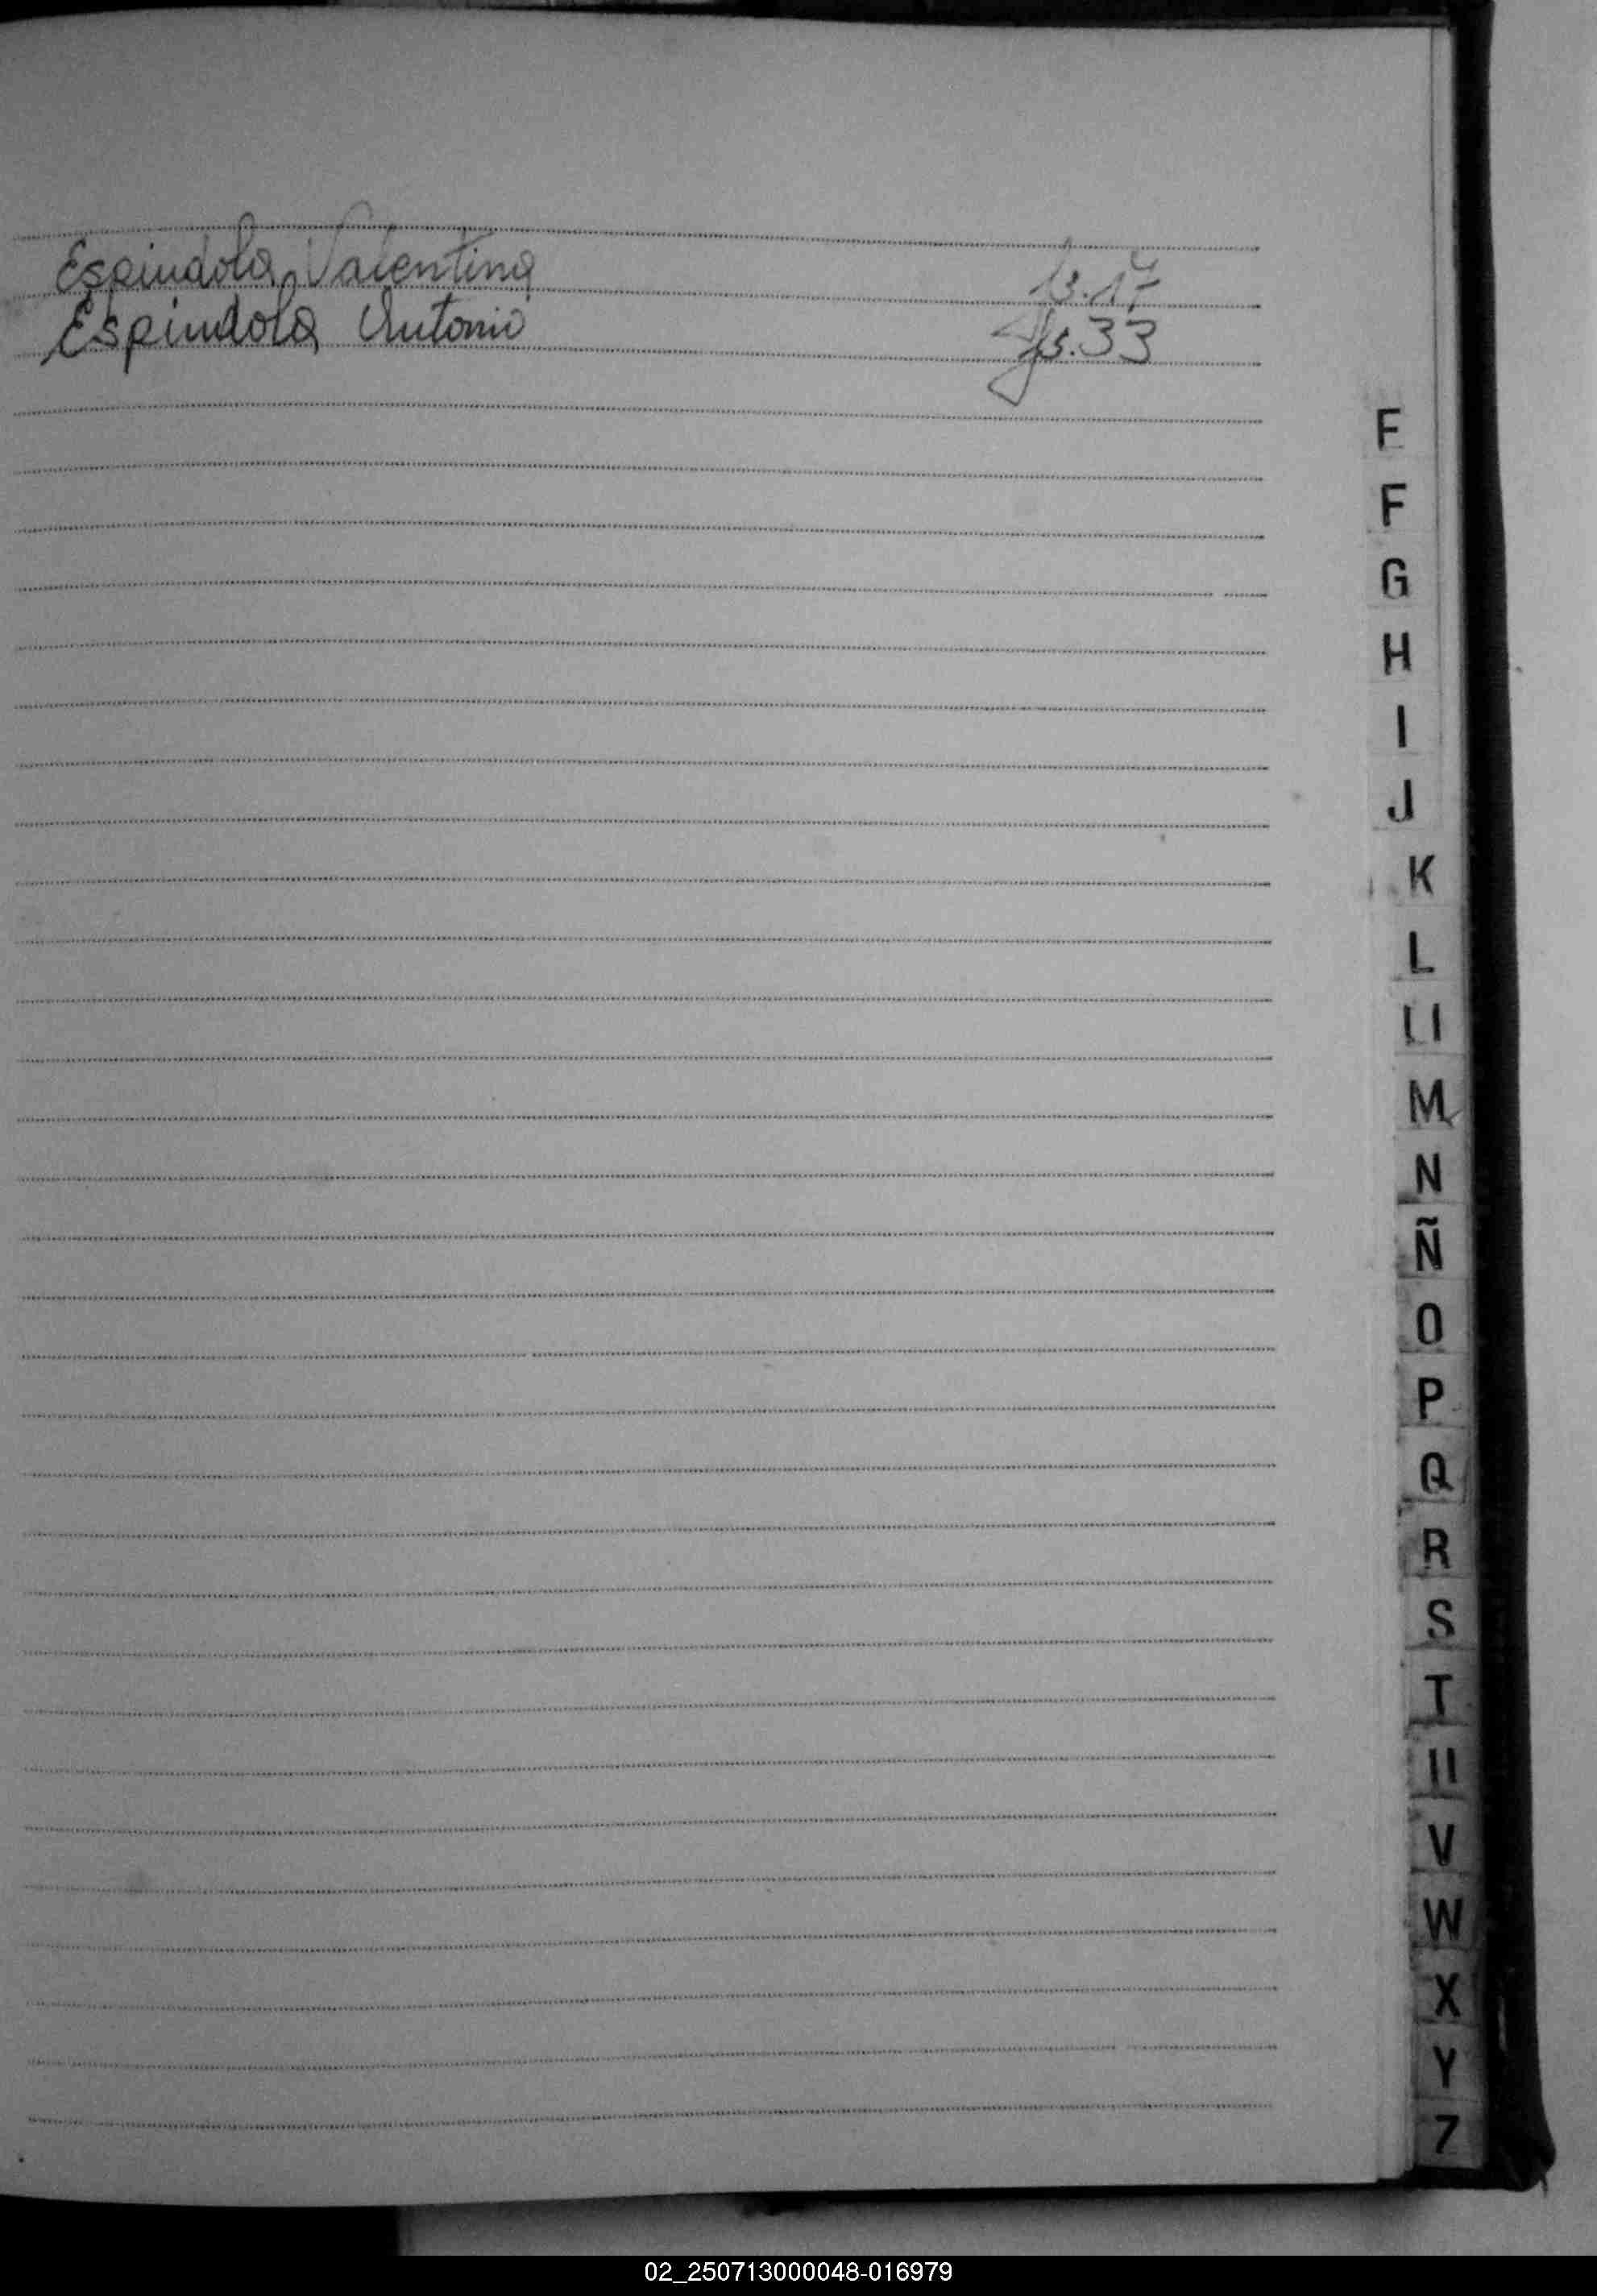 Espindola, Valentina fs. 17
Espindola Antonio fs. 33
E
F
G
H
I
J
K
L
Ll
M
N
Ñ
O
P
Q
R
S
T
U
V
W
X
Y
Z
02_250713000048-016979